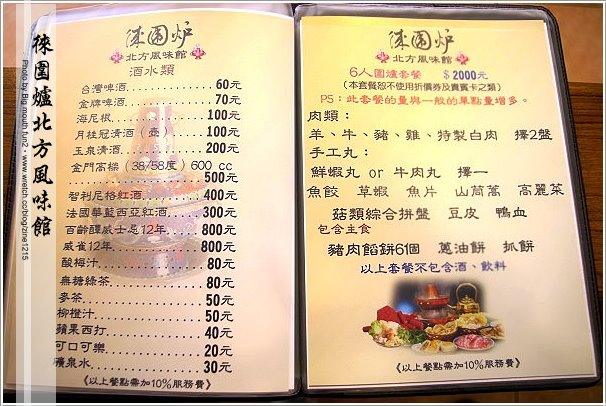 徠圍爐北方風味館
Photo by Big mouth fun2 - www.wretch.cc/blog/zine1215
徠圍炉
北方風味館
酒水類
台灣啤酒 60元
金牌啤酒 70元
海尼根 100元
月桂冠清酒（壺） 100元
玉泉清酒 200元
金門高樑（38/58度）600 cc
500元
智利尼格紅酒 400元
法國華藍西亞紅酒 300元
百齡罈威士忌12年 800元
威雀12年 800元
酸梅汁 80元
無糖綠茶 80元
麥茶 50元
柳橙汁 50元
蘋果西打 40元
可口可樂 20元
礦泉水 30元
《以上餐點需加10%服務費》
徠圍炉
北方風味館
6人圍爐套餐 $2000元
（本套餐恕不使用折價券及貴賓卡之類）
PS：此套餐的量與一般的單點量增多。
肉類：
羊、牛、豬、雞、特製白肉 擇2盤
手工丸：
鮮蝦丸 or 牛肉丸 擇一
魚餃 草蝦 魚片 山茼萵 高麗菜
菇類綜合拼盤 豆皮 鴨血
包含主食
豬肉餡餅6個 蔥油餅 抓餅
以上套餐不包含酒、飲料
《以上餐點需加10%服務費》